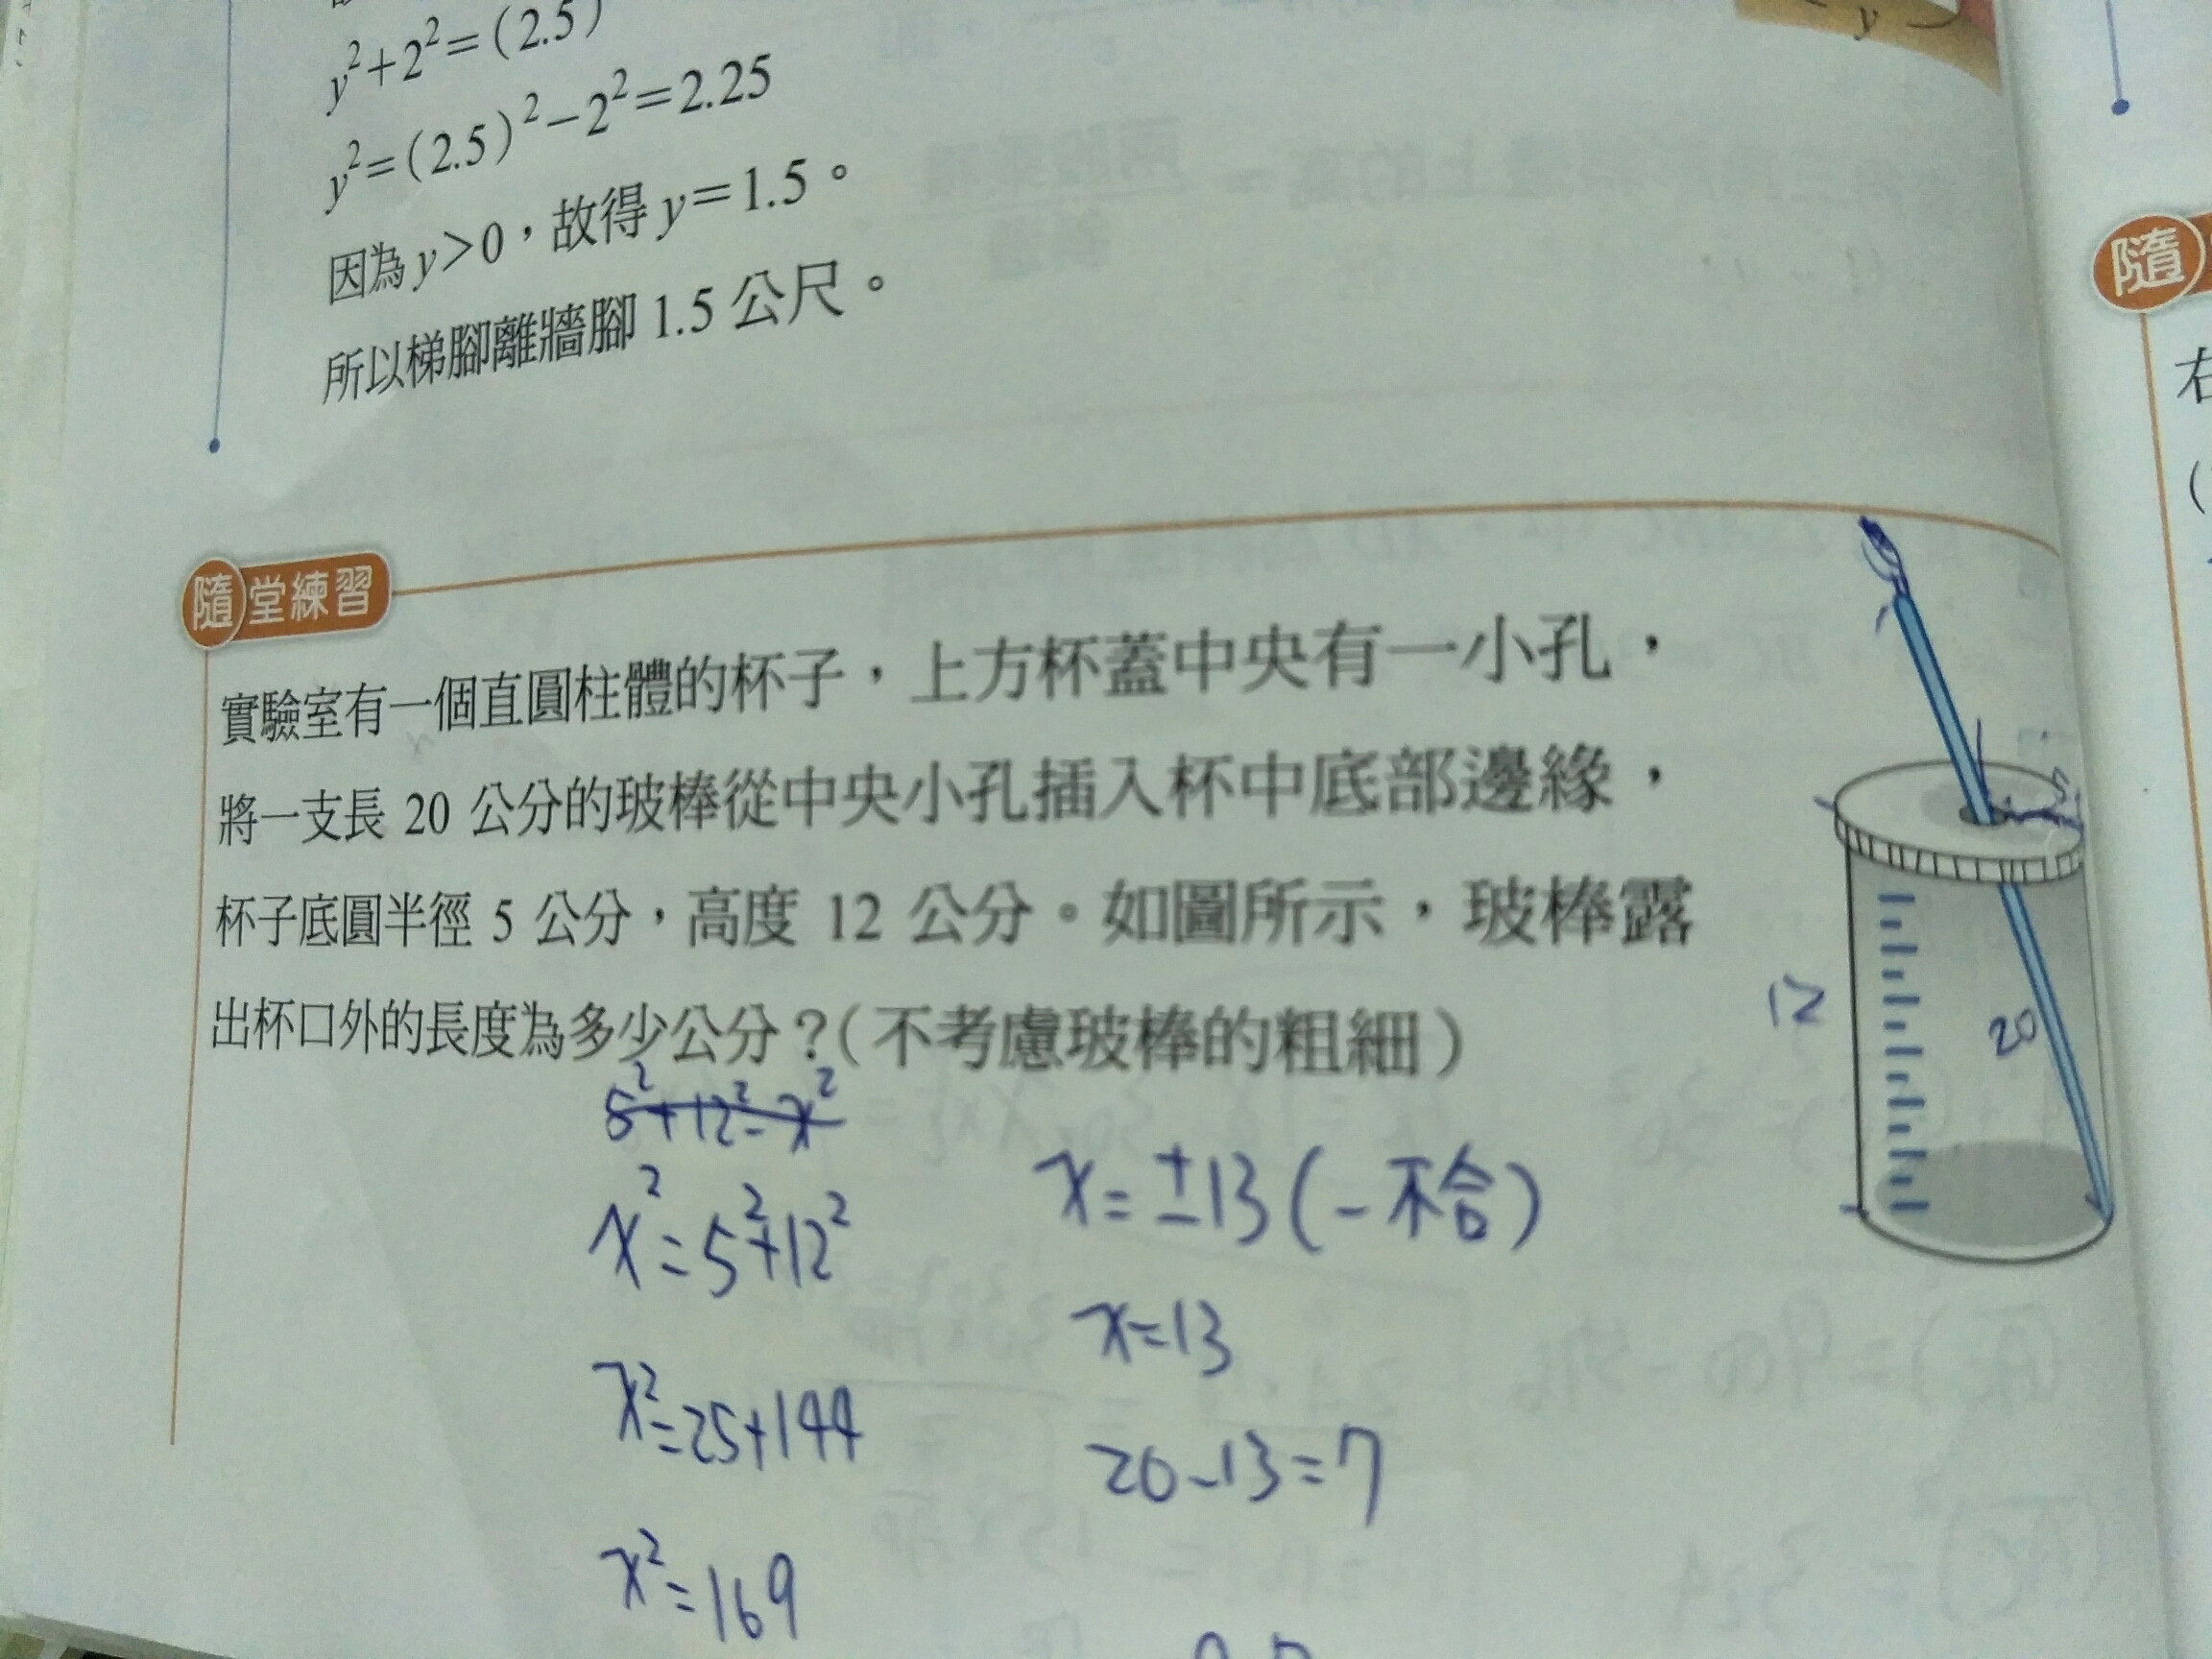 y²+2²=(2.5)
y²=(2.5)²−2²=2.25
因為y>0，故得y=1.5。
所以梯腳離牆腳 1.5 公尺。
y
隨
右
(
隨堂練習
實驗室有一個直圓柱體的杯子，上方杯蓋中央有一小孔，
將一支長 20 公分的玻棒從中央小孔插入杯中底部邊緣，
杯子底圓半徑 5 公分，高度 12 公分。如圖所示，玻棒露
出杯口外的長度為多少公分？(不考慮玻棒的粗細)
5
12
20
5²+12²=x²
x²=5²+12²
x²=25+144
x²=169
x=±13(-不合)
x=13
20-13=7